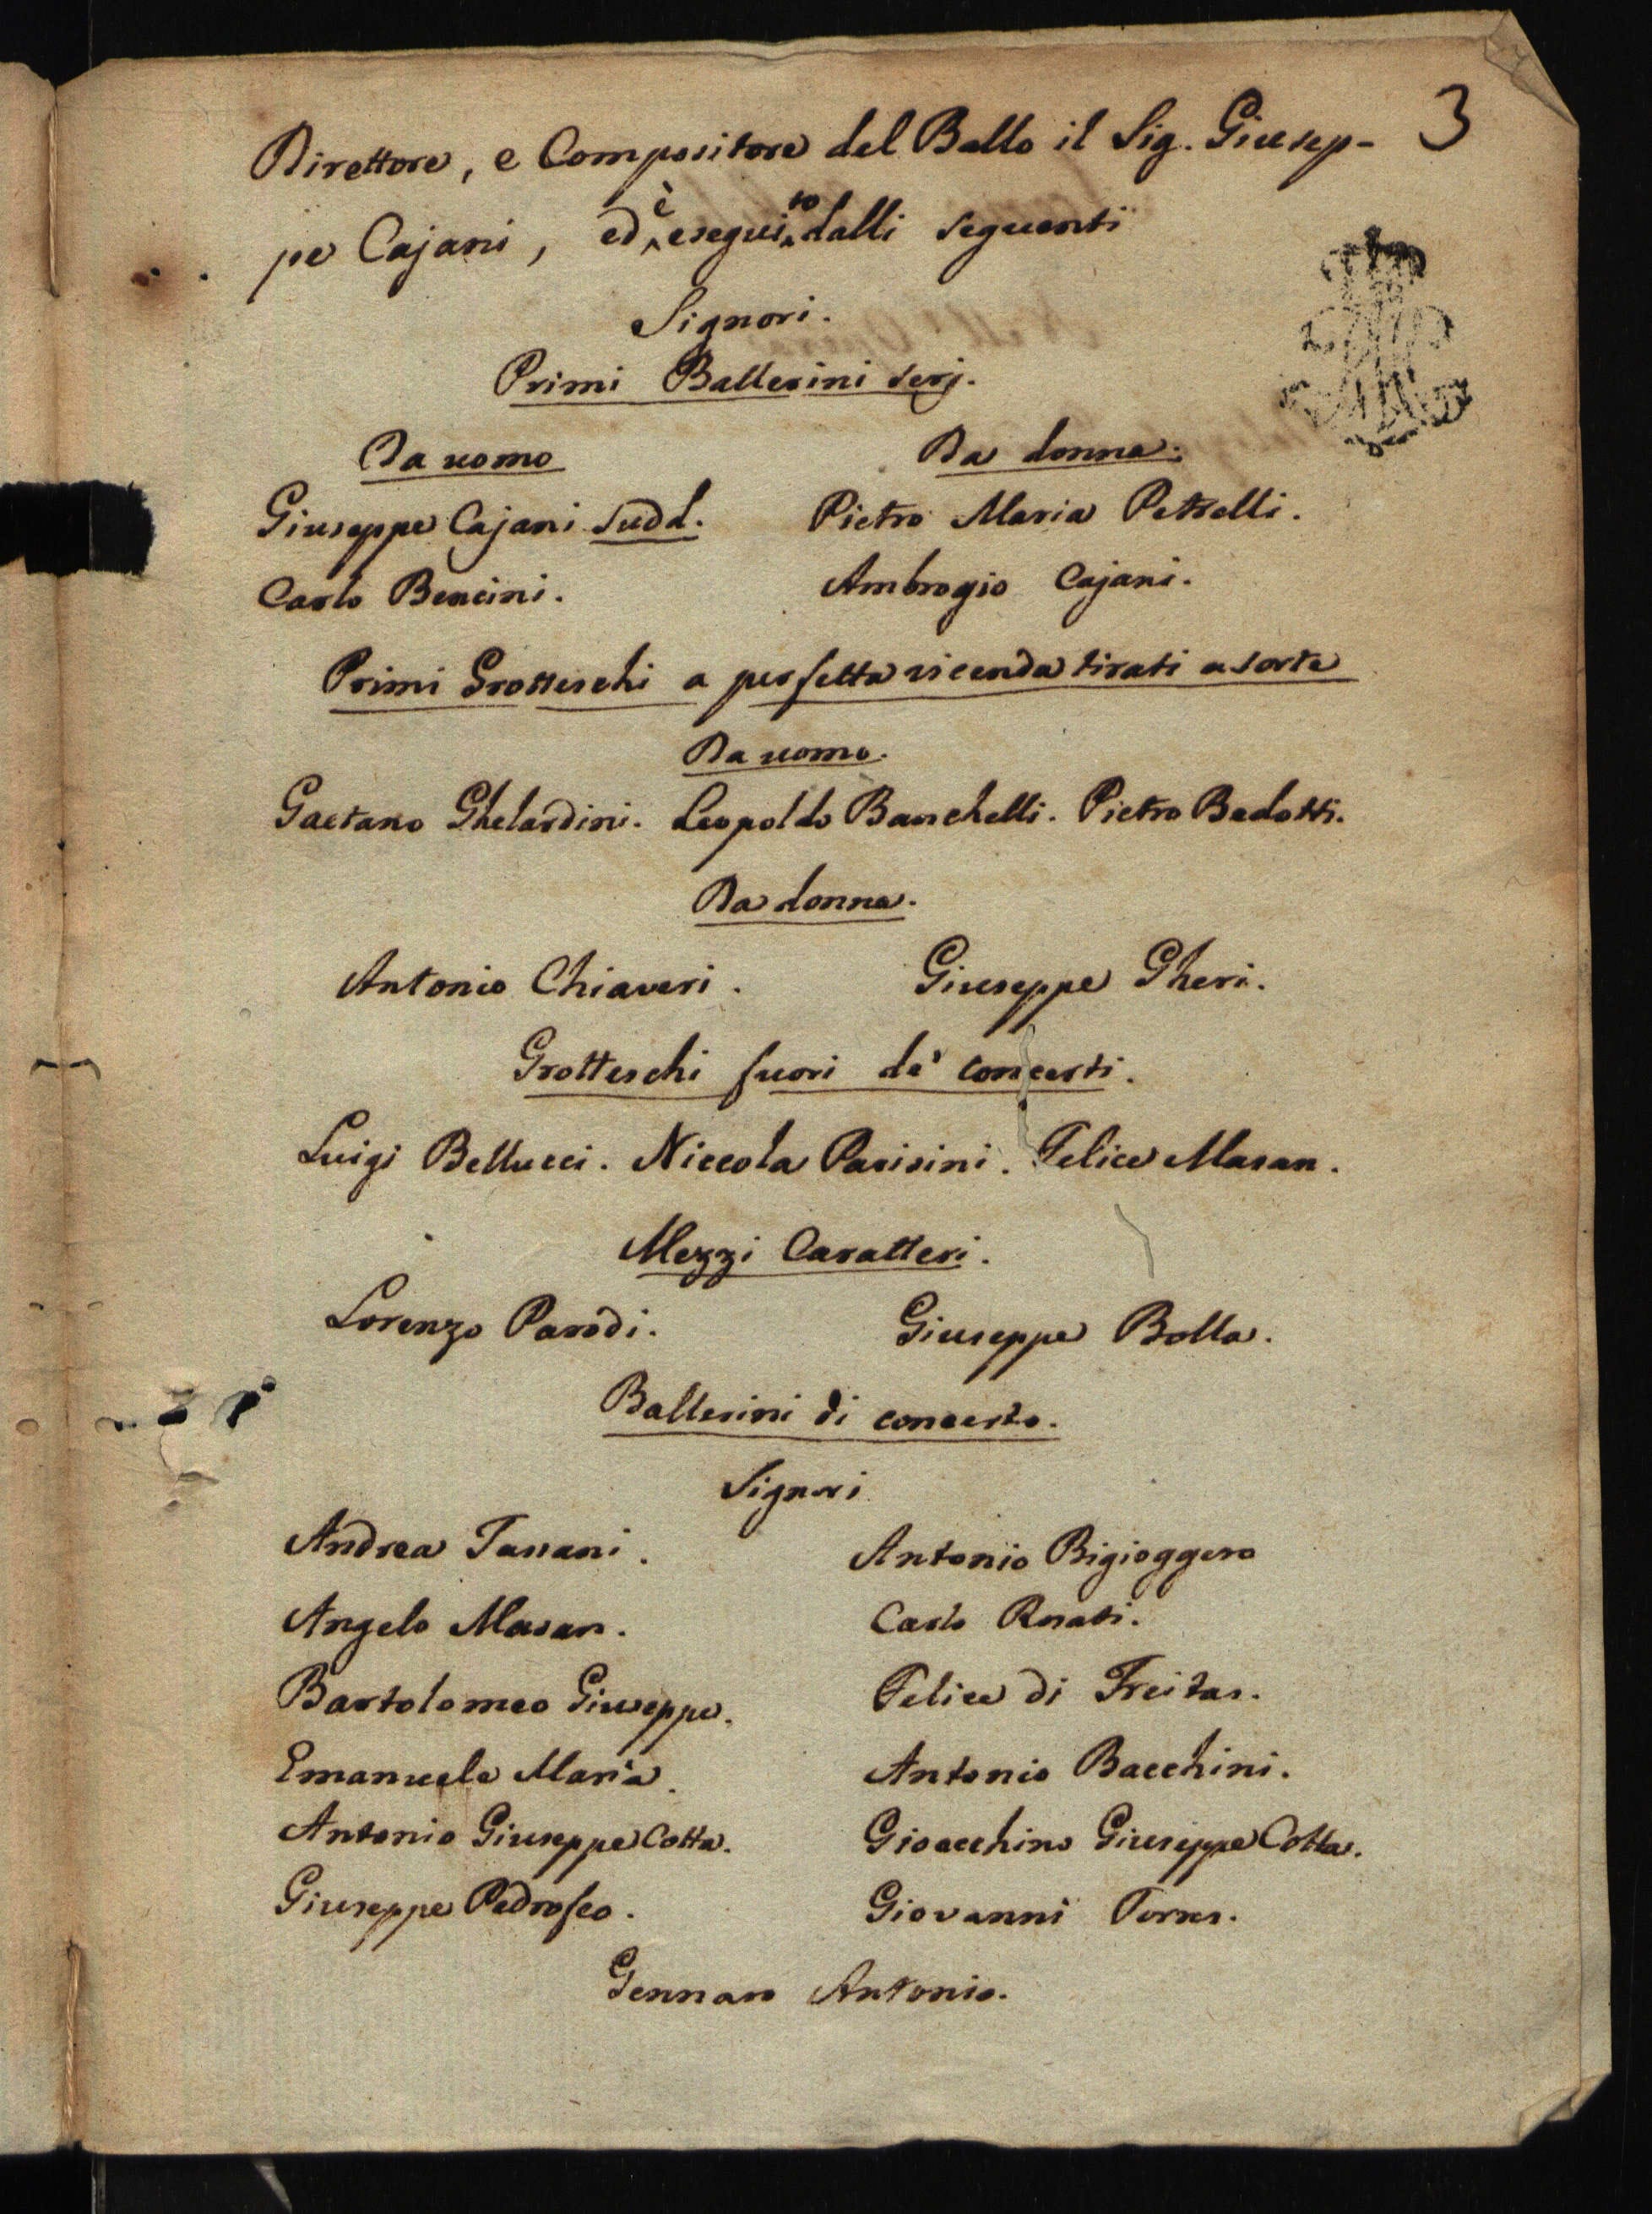 3
Direttore, e Compositore del Ballo il Sig. Giusep-
pe Cajani, ed è eseguito dalli seguenti
Signori.
Primi Ballerini serj.
Da uomo Da donna.
Giuseppe Cajani sudd. Pietro Maria Petrelli.
Carlo Bencini. Ambrogio Cajani.
Primi Grotteschi a perfetta vicenda tirati a sorte
Da uomo.
Gaetano Ghelardini. Leopoldo Banchelli. Pietro Bedotti.
Da donna.
Antonio Chiaveri. Giuseppe Gheri.
Grotteschi fuori de' concerti.
Luigi Bellucci. Niccola Parisini. Felice Masan.
Mezzi Caratteri.
Lorenzo Parodi. Giuseppe Bolla.
Ballerini di concerto.
Signori
Andrea Tassani. Antonio Bigioggero
Angelo Masan. Carlo Rosati.
Bartolomeo Giuseppe. Felice di Freitas.
Emanuele Maria. Antonio Bacchini.
Antonio Giuseppe Cotta. Gioacchino Giuseppe Cotta.
Giuseppe Pedroseo. Giovanni Torres.
Gennaro Antonio.